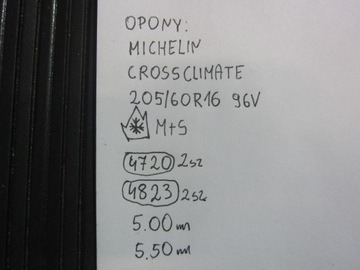 OPONY:
MICHELIN
CROSSCLIMATE
205/60R16 96V
M+S
4720 2sz
4823 2sz
5.00 m
5.50 m